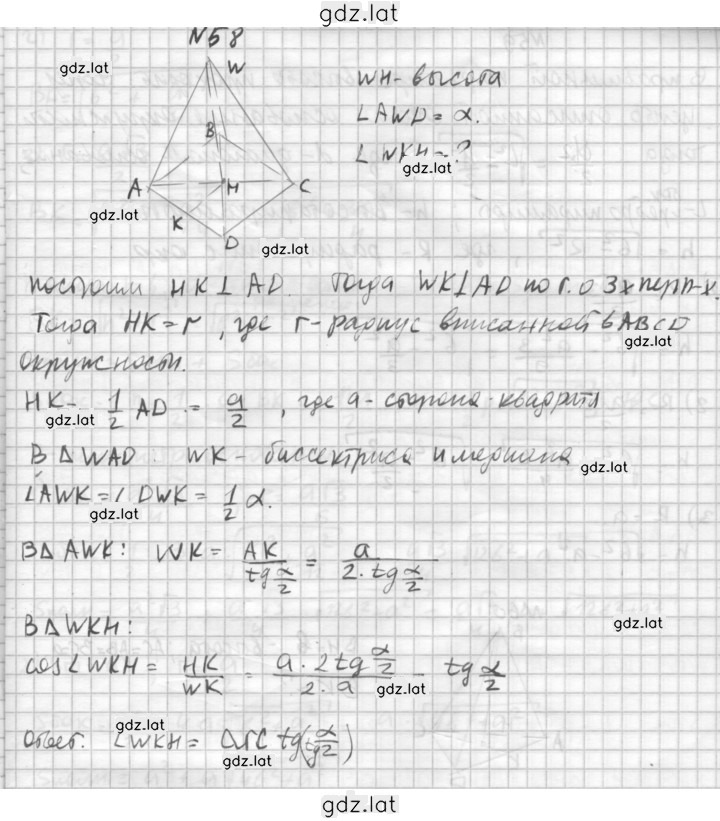 gdz.lat
N58
gdz.lat
W
WH - высота
∠AWD = α.
∠WKH - ?
gdz.lat
B
A
H
C
gdz.lat
K
D
gdz.lat
Построим HK ⊥ AD. Тогда WK ⊥ AD по т. о 3х перп-х
Тогда HK = r, где r - радиус вписанной в ABCD
gdz.lat
окружности.
HK = 1/2 AD = a/2, где a - сторона квадрата
gdz.lat
В △ WAD: WK - биссектриса и медиана
gdz.lat
∠AWK = ∠DWK = 1/2 α.
gdz.lat
В△ AWK: WK = AK / tg α/2 = a / 2·tg α/2
В△ WKH:
gdz.lat
cos∠WKH = HK/WK = a·2tg α/2 / 2·a = tg α/2
gdz.lat
gdz.lat
Ответ: ∠WKH = arc tg(tg α/2)
gdz.lat
gdz.lat